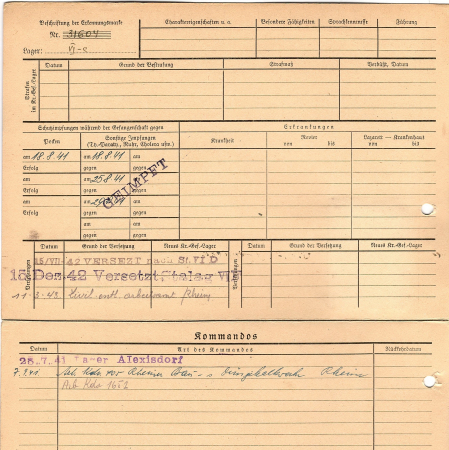 Beschriftung der Erkennungsmarke
Nr. 31604
Lager: VI-c
Charaktereigenschaften u. a.
Besondere Fähigkeiten
Sprachkenntnisse
Führung
Strafen im Kr.-Gef.-Lager
Datum
Grund der Bestrafung
Strafmaß
Verbüßt, Datum
Schutzimpfungen während der Gefangenschaft gegen
Pocken
Sonstige Impfungen
(Ty.-Paraty., Ruhr, Cholera usw.)
am 18.8.41 am 18.8.41 am
Erfolg gegen gegen
am am 25.8.41 am
Erfolg gegen gegen
am am am
Erfolg gegen gegen
am am
gegen gegen
GEIMPFT
Erkrankungen
Krankheit
Revier
von bis
Lazarett - Krankenhaus
von bis
Versetzungen
Datum Grund der Versetzung Neues Kr.-Gef.-Lager
Datum Grund der Versetzung Neues Kr.-Gef.-Lager
15/VII-42 VERSEZT nach St. VI D
15 Dez. 42 Versetzt
Kommandos
Datum
Art des Kommandos
Rückkehrdatum
28.7.41 Alexisdorf
7.9.41 Arb. Kdo Rheine
Arb Kdo 1652